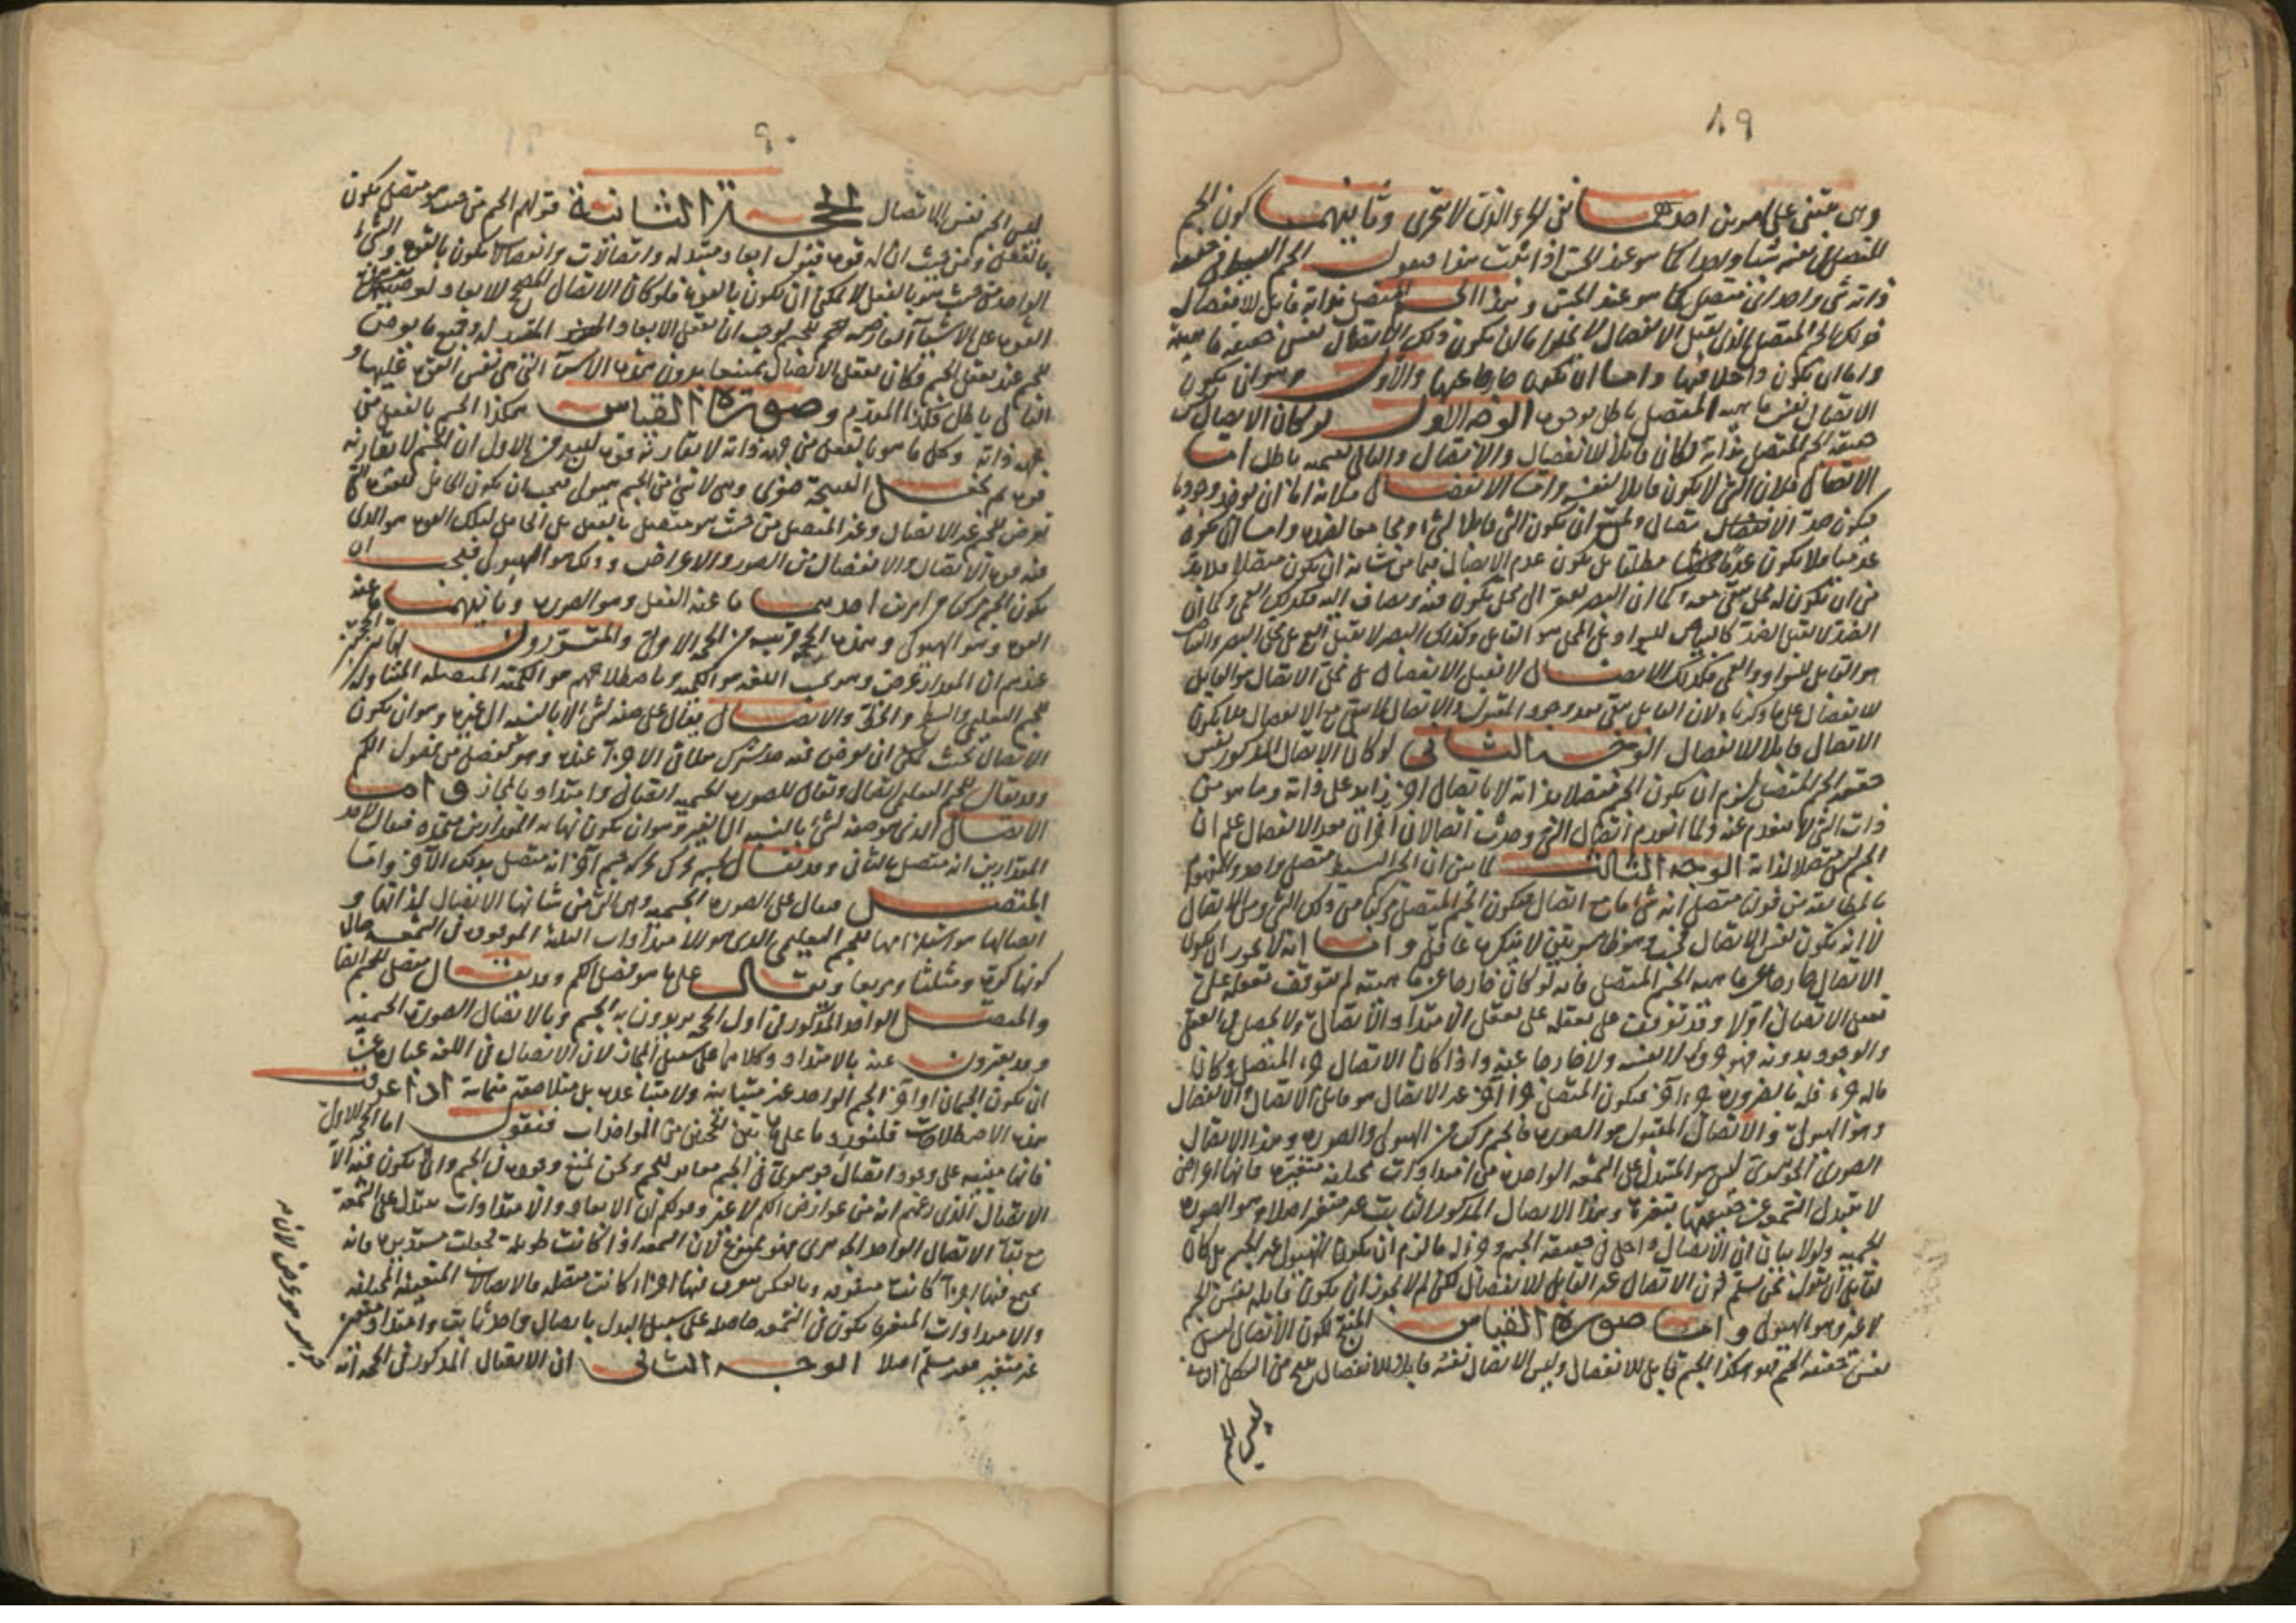 ٨٩
وهى مبنى على امرين احدهما نفى الجزء الذى لا يتجزى وثانيهما كون الجسم
المتصل فى نفسه شيئا واحدا كما هو عند الحس اذا ثبت هذا فنقول الجسم البسيط فى حقيقة
ذاته شئ واحد اى متصل كما هو عند الحس وهذا الجسم المتصل بذاته قابل للانفصال
فذلك الجسم المتصل الذى يقبل الانفصال لا يخلوا اما ان يكون ذلك الاتصال نفس حقيقة ماهيته
واما ان يكون داخلا فيها واما ان يكون خارجا عنها والاول وهو ان يكون
الاتصال نفس ماهية المتصل باطل بوجوه الوجه الاول لو كان الاتصال نفس
حقيقة الجسم المتصل بذاته لكان قابلا للانفصال والاتصال والتالى بقسميه باطل اما
الاتصال فلان الشئ لا يكون قابلا لنفسه واما الانفصال فلانه اما ان يوخذ وجوديا
فيكون ضد الاتصال ويمتنع ان يكون الشئ قابلا لشئ ومجامعا لضده واما ان يكون
عدميا فلا يكون عدما مطلقا بل يكون عدم الاتصال فيما من شانه ان يكون متصلا فلا بد
من ان يكون له محل يبقى معه كما ان البصر يفتقر الى محل يكون فيه ويضاف اليه فكذلك العمى وكما ان
الضد لا يقبل الضد كالبياض للسواد بل المحل هو القابل وكذلك البصر لا يقبل العمى بل محل البصر والبياض
هو القابل للسواد والعمى فكذلك الاتصال لا يقبل الانفصال بل محل الاتصال هو القابل
للانفصال على ما ذكرنا ولان القابل يبقى مع وجود المقبول والاتصال لا يبقى مع الانفصال فلا يكون
الاتصال قابلا للانفصال الوجه الثانى لو كان الاتصال المذكور نفس
حقيقة الجسم المتصل لزم ان يكون الجسم متصلا بذاته لا باتصال اخر زايد على ذاته وما هو من
ذات الشئ لا ينعدم عنه ولما انعدم اتصال الشئ وحدث اتصالان اخران بعد الانفصال علم ان
الجسم ليس متصلا لذاته الوجه الثالث لما بين ان الجسم البسيط متصل واحد والمفهوم
بالمطابقة من قولنا متصل انه شئ ما مع اتصال فيكون الجسم المتصل مركبا من ذلك الشئ ومن الاتصال
لا انه يكون نفس الاتصال فحسب وهو ظاهر يقين لا ينكره عاقل واما انه لا يجوز ان يكون
الاتصال خارجا عن ماهية الجسم المتصل فانه لو كان خارجا عن ماهيته لم يتوقف تعقله على
تعقل الاتصال اولا وقد توقفت على تعقله على تعقل الامتداد والاتصال ولا يحصل فى العقل
والوجود بدونه فهو جزوه لا نفسه ولا خارجا عنه واذا كان الاتصال جزء المتصل وكان
ماله جزء فله بالضرورة جزء اخر فيكون للمتصل جزء اخر غير الاتصال هو قابل الاتصال والانفصال
وهو الهيولى والاتصال المقبول هو الصورة فالجسم مركب من الهيولى والصورة وهذا الاتصال
الصورى الجوهرى ليس هو المتبدل على الشمعة الواحدة من امتدادات مختلفة متغيرة فانها اعراض
لا تتبدل الشمعة عن حقيقتها بتغيره وهذا الاتصال المذكور الثابت غير متغير اصلا وهو الصورة
الجسمية ولولا بيان ان الاتصال داخل فى حقيقة الجسم وجزء له ما لزم ان يكون الهيولى غير الجسم بل كان
لقايل ان يقول نحن نسلم كون الاتصال غير القابل للانفصال لكن لم لا يجوز ان يكون قابله نفس الجسم
لا غير وهو الهيولى واما صورة القياس المنتج لكون الاتصال ليس
نفس حقيقة الجسم فهو هكذا الجسم قابل للانفصال وليس الاتصال نفسه قابلا للانفصال ينتج من الشكل الثانى
ليس الجسم
٩٠
ليس الجسم نفس الاتصال الحجة الثانية قولهم الجسم من حيث هو متصل يكون
بالفعل ومن حيث ان له قوة قبول ابعاد متبدلة واتصالات وانفصالات يكون بالقوة والشئ
الواحد من حيث هو بالفعل لا يمكن ان يكون بالقوة فلو كان الاتصال المصحح للابعاد
القوة على الاشياء العارضة للجسم لوجب ان يتعقل الابعاد
للجسم عند تعقل الجسم فكان تعقل الاتصال ممتنعا بدون هذه الاشياء التى هى نفس القوة عليها و
التالى باطل فكذا المقدم وصورة القياس هكذا الجسم بالفعل من
جهة ذاته وكل ما هو بالفعل من جهة ذاته لا يقارنه قوة ينتج من الاول ان الجسم لا يقارنه
قوة ثم نجعل النتيجة صغرى وهى لا شئ من الجسم هيولى فيجب ان يكون الحامل للقوة التى
تعرض للجسم غير الاتصال وغير المتصل من حيث هو متصل بالفعل بل الحامل لتلك القوة هو الذى
فيه قوة الاتصال والانفصال من الصور والاعراض وذلك هو الهيولى فيجب ان
يكون الجسم مركبا من امرين احدهما ما عنه الفعل وهو الصورة وثانيهما ما عنه
القوة وهو الهيولى وهذه الحجة قريبة من الحجة الاولى والمقررون لهاتين الحجتين
عندهم ان المقدار عرض وهو فى اللغة هو الكمية وباصطلاحهم هو الكمية المتصلة المتناولة
للجسم التعليمى والسطح والخط والاتصال يقال على صفة لشئ لا بالنسبة الى غيره وهو ان يكون
الاتصال بحيث يمكن ان يعرض فيه حد مشترك يتلاقى الاجزاء عنده وهو فصل من فصول الكم
وقد يقال للجسم التعليمى اتصال ويقال للصورة الجسمية اتصال وامتداد بالمجاز واما
الاتصال الذى هو صفة لشئ بالنسبة الى الغير وهو ان يكون نهاية المقدارين متحدة فيقال لاحد
المقدارين انه متصل بالثانى وقد يقال لجسم يحرك بحركة جسم اخر انه متصل بذلك الاخر واما
المتصل فيقال على الصورة الجسمية وهى التى من شانها الاتصال لذاتها و
اتصالها هو استلزامها للجسم التعليمى الذى هو للامتدادات الثلثة الموجود فى الشمعة حال
كونها كرة ومثلثا ومربعا ويقال على ما هو فصل الكم وقد يقال متصل للجسم ايضا
والمتصل الواحد المذكور فى اول الحجة يريدون به الجسم وبالاتصال الصورة الجسمية
وقد يعبرون عنه بالامتداد وكلاهما على سبيل المجاز لان الاتصال فى اللغة عبارة عن
ان يكون الجسمان او اجزاء الجسم الواحد غير متباينة ولا متباعدة بل متلاصقة متماسة اذا عرفت
هذه الاصطلاحات فلنورد ما على هاتين الحجتين من المواخذات فنقول اما الحجة الاولى
فانها مبنية على وجود اتصال جوهرى فى الجسم مقابر للجسم ونحن نمنع وجوده فى الجسم وانه لا يكون فيه الا
الاتصال الذى زعمتم انه من عوارض الكم لا غير وقولكم ان الابعاد والامتدادات يتبدل على الشمعة
مع بقاء الاتصال الواحد الجوهرى فهو ممنوع لان الشمعة اذا كانت طويلة فجعلت مستديرة فانه
يجتمع فيها اجزاء كانت متفرقة وبالعكس يتفرق فيها اجزاء كانت متصلة فالاتصالات المتعينة المختلفة
والامتدادات المتغيرة يكون فى الشمعة حاصلة على سبيل البدل باتصال واحد ثابت وامتداد
غير متغير غير مسلم اصلا الوجه الثانى ان الاتصال المذكور فى الحجة انه
جوهر هو عرض لانه